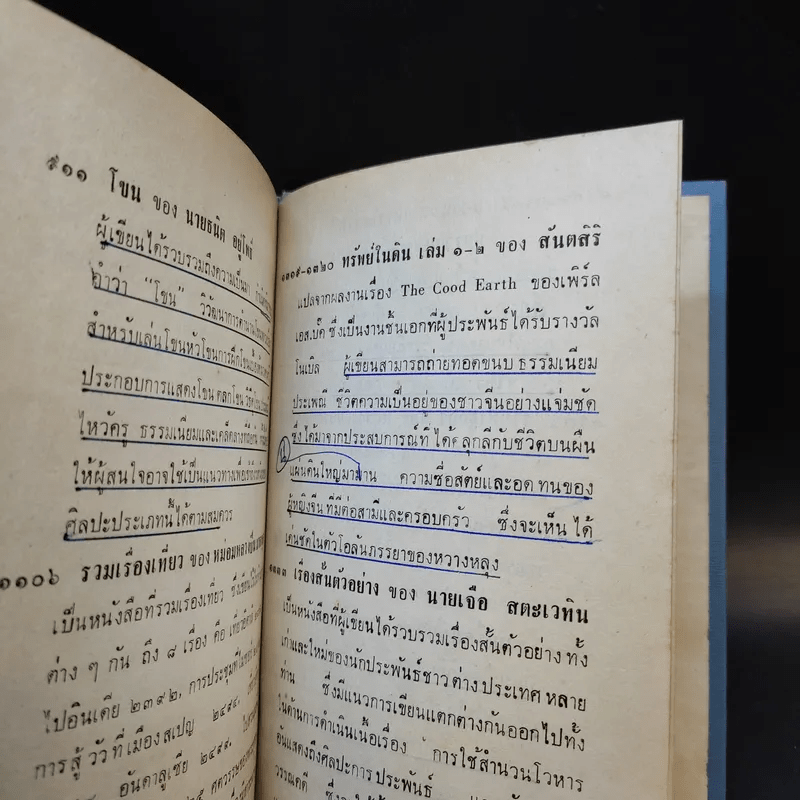 ๙๑๑ โขน ของ นายธนิต อยู่โพธิ์
ผู้เขียนได้รวบรวมถึงความเป็นมา
คำว่า "โขน" วิวัฒนาการ
สำหรับเล่นโขนหัวโขนการฝึกโขน
ประกอบการแสดงโขน ตลกโขน
ไหว้ครู ธรรมเนียมและเคล็ดลาง
ให้ผู้สนใจอาจใช้เป็นแนวทางเพื่อ
ศิลปะประเภทนี้ได้ตามสมควร
๑๑๐๖ รวมเรื่องเที่ยว ของ
เป็นหนังสือที่รวมเรื่องเที่ยว
ต่าง ๆ กัน ถึง ๘ เรื่อง คือ
ไปอินเดีย ๒๓๙๒, การประชุม
การ สู้ วัว ที่ เมือง สเปญ ๒๔๙๔,
อันดาลูเซีย ๒๔๙๙,
๑๓๑๙-๑๓๒๐ ทรัพย์ในดิน เล่ม ๑-๒ ของ สันตสิริ
แปลจากผลงานเรื่อง The Cood Earth ของเพิร์ล
เอส.บั๊ค ซึ่งเป็นงานชั้นเอกที่ผู้ประพันธ์ได้รับรางวัล
โนเบิล ผู้เขียนสามารถถ่ายทอดขนบ ธรรมเนียม
ประเพณี ชีวิตความเป็นอยู่ของชาวจีนอย่างแจ่มชัด
ซึ่งได้มาจากประสบการณ์ที่ ได้คลุกลีกับชีวิตบนผืน
แผ่นดินใหญ่มานาน ความซื่อสัตย์และอด ทนของ
ผู้หญิงจีน ที่มีต่อสามีและครอบครัว ซึ่งจะเห็น ได้
เด่นชัดในตัวโอลันภรรยาของหวางหลุง
เรื่องสั้นตัวอย่าง ของ นายเจือ สตะเวทิน
เป็นหนังสือที่ผู้เขียนได้รวบรวมเรื่องสั้นตัวอย่าง ทั้ง
เก่าและใหม่ของนักประพันธ์ชาว ต่าง ประเทศ หลาย
ท่าน ซึ่งมีแนวการเขียนแตกต่างกันออกไปทั้ง
ในด้านการดำเนินเนื้อเรื่อง การใช้สำนวนโวหาร
อันแสดงถึงศิลปะการ ประพันธ์
วรรณคดี